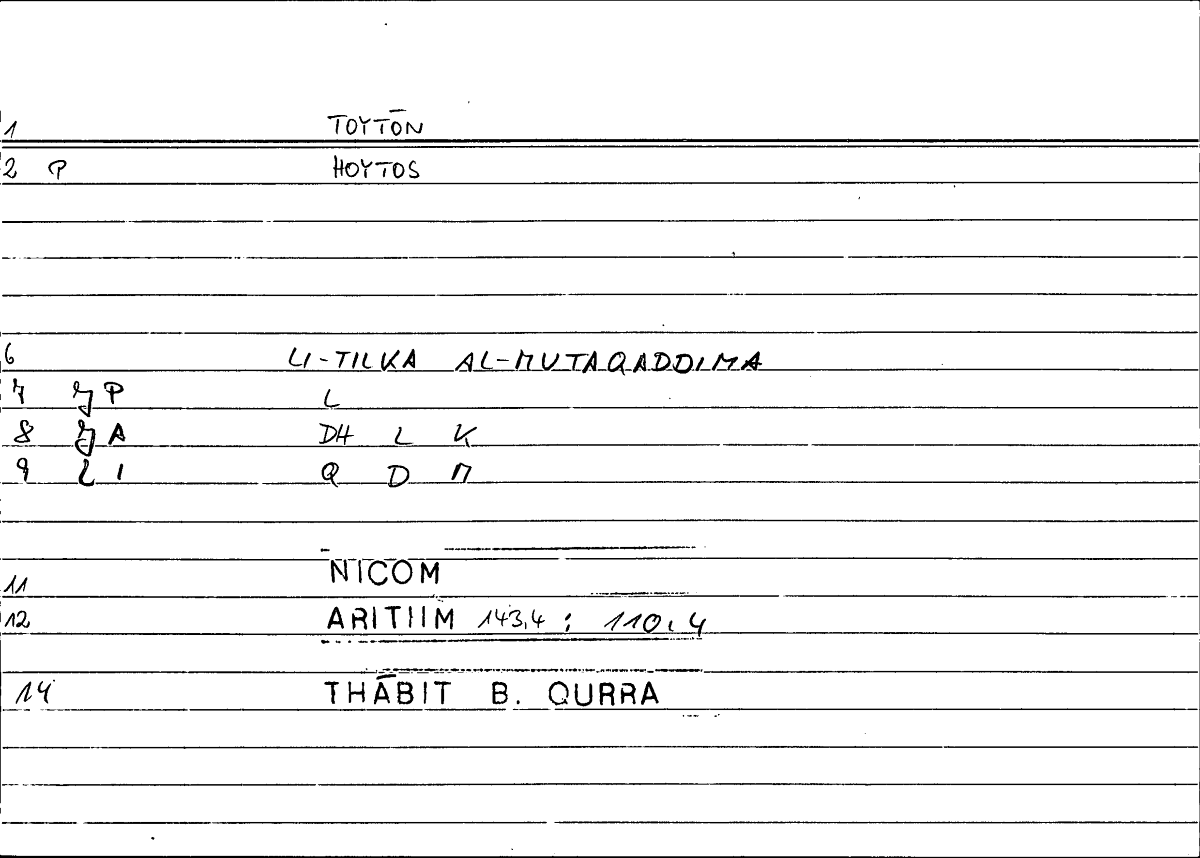 1 TOYTŌN
2 P HOYTOS
6 LI-TILKA AL-MUTAQADDIMA
7 P L
8 A DH L K
9 I Q D M
11 NICOM
12 ARITHM 143,4 : 110,4
14 THĀBIT B. QURRA